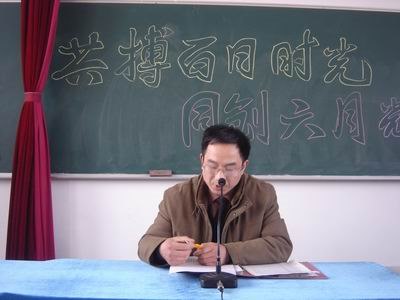 共搏百日时光
同创六月